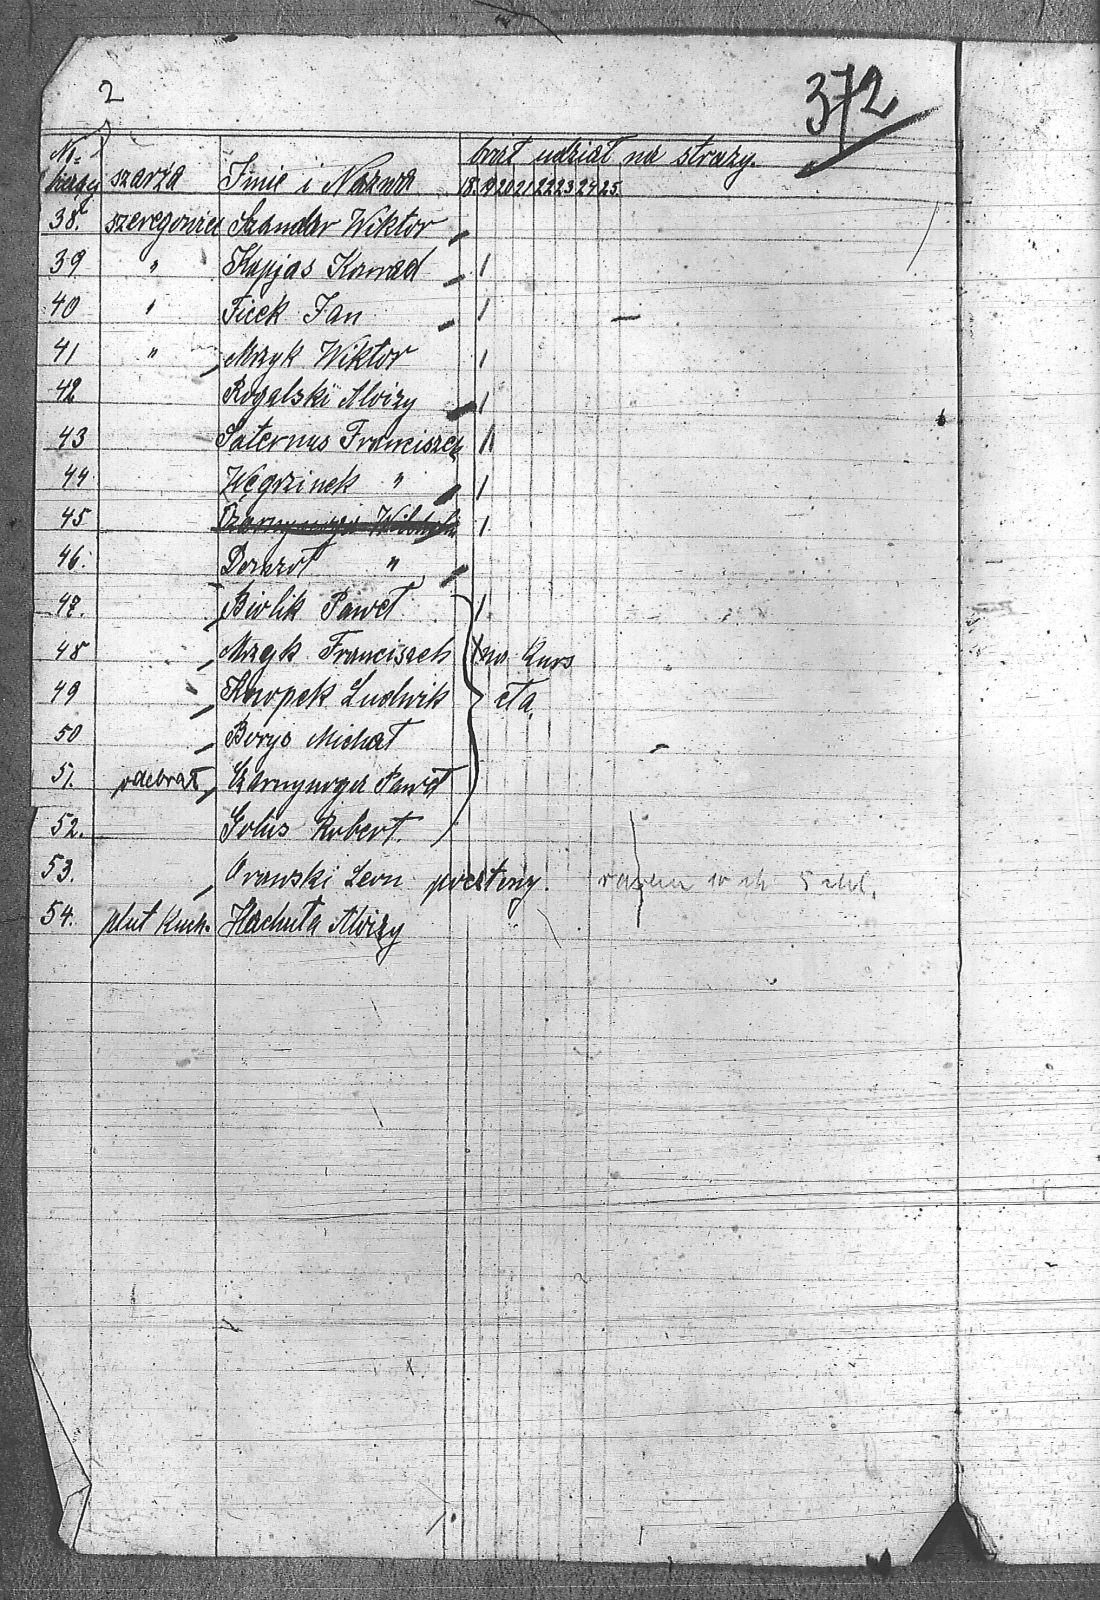 2
372
No. bieżący szarża Imie i Nazwa brał udział na straży.
18. 19 20 21 22 23 24 25.
38. szeregowiec Szander Wiktor
39 " Kapjas Konrad
40 " Ficek Jan
41 " Mrzyk Wiktor
42 Rogalski Aloizy
43 Saternus Franciszek
44 Węgrzinek "
45
46. "
47. Biolik Paweł
48 Mrzyk Franciszek na Kurs
49 Knopek Ludwik cta.
50 Borys Michał
51. odebrał Czarnynoga Paweł
52. Golus Robert.
53. Orawski Leon
54. plut Kuch. Hachuła Aloizy